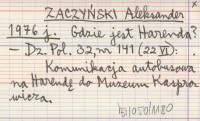 ZACZYŃSKI Aleksander
1976 r. Gdzie jest Harenda?
— Dz. Pol. 32, nr 141 (22 VI):
Komunikacja autobusowa
na Harendę do Muzeum Kaspro-
wicza.